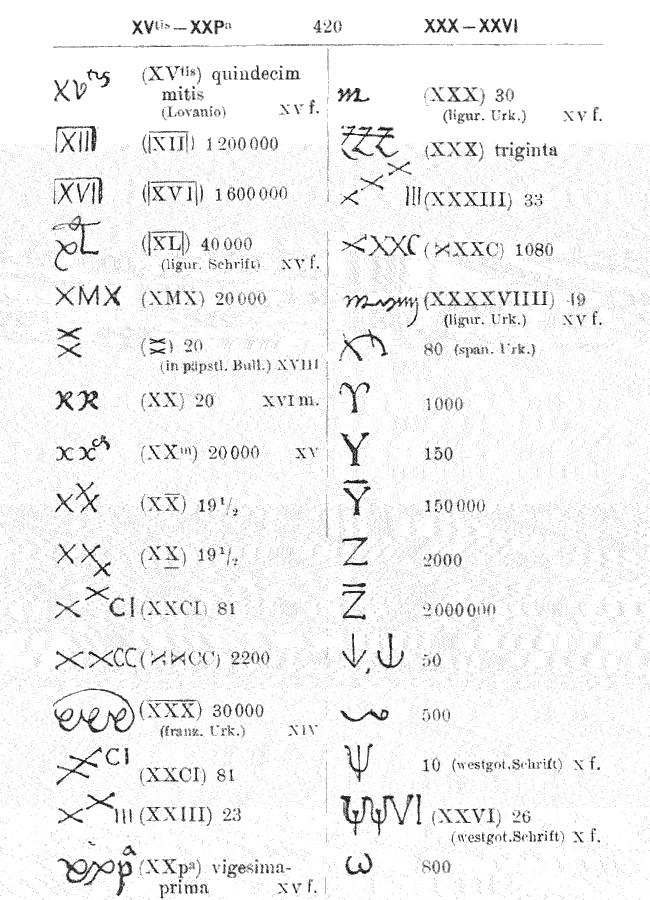 XVtis—XXPa 420 XXX—XXVI
(XVtis) quindecim
mitis
(Lovanio) XV f.
(|X̅I̅I̅|) 1 200 000
(|X̅V̅I̅|) 1 600 000
(|X̅L̅|) 40 000
(ligur. Schrift) XV f.
XMX (XMX) 20 000
20
(in päpstl. Bull.) XVIII
(XX) 20 XVI m.
(XXm) 20 000 XV
(XX̅) 19 1/2
(XX̲) 19 1/2
(XXCI) 81
CC) 2200
(X̅X̅X̅) 30 000
(franz. Urk.) XIV
(XXCI) 81
(XXIII) 23
(XXpa) vigesima-
prima XV f.
(XXX) 30
(ligur. Urk.) XV f.
(XXX) triginta
(XXXIII) 33
XXC) 1080
(XXXXVIIII) 49
(ligur. Urk.) XV f.
80 (span. Urk.)
ϒ 1000
Y 150
Y̅ 150 000
Z 2000
Z̅ 2 000 000
50
500
10 (westgot.Schrift) X f.
(XXVI) 26
(westgot.Schrift) X f.
ω 800